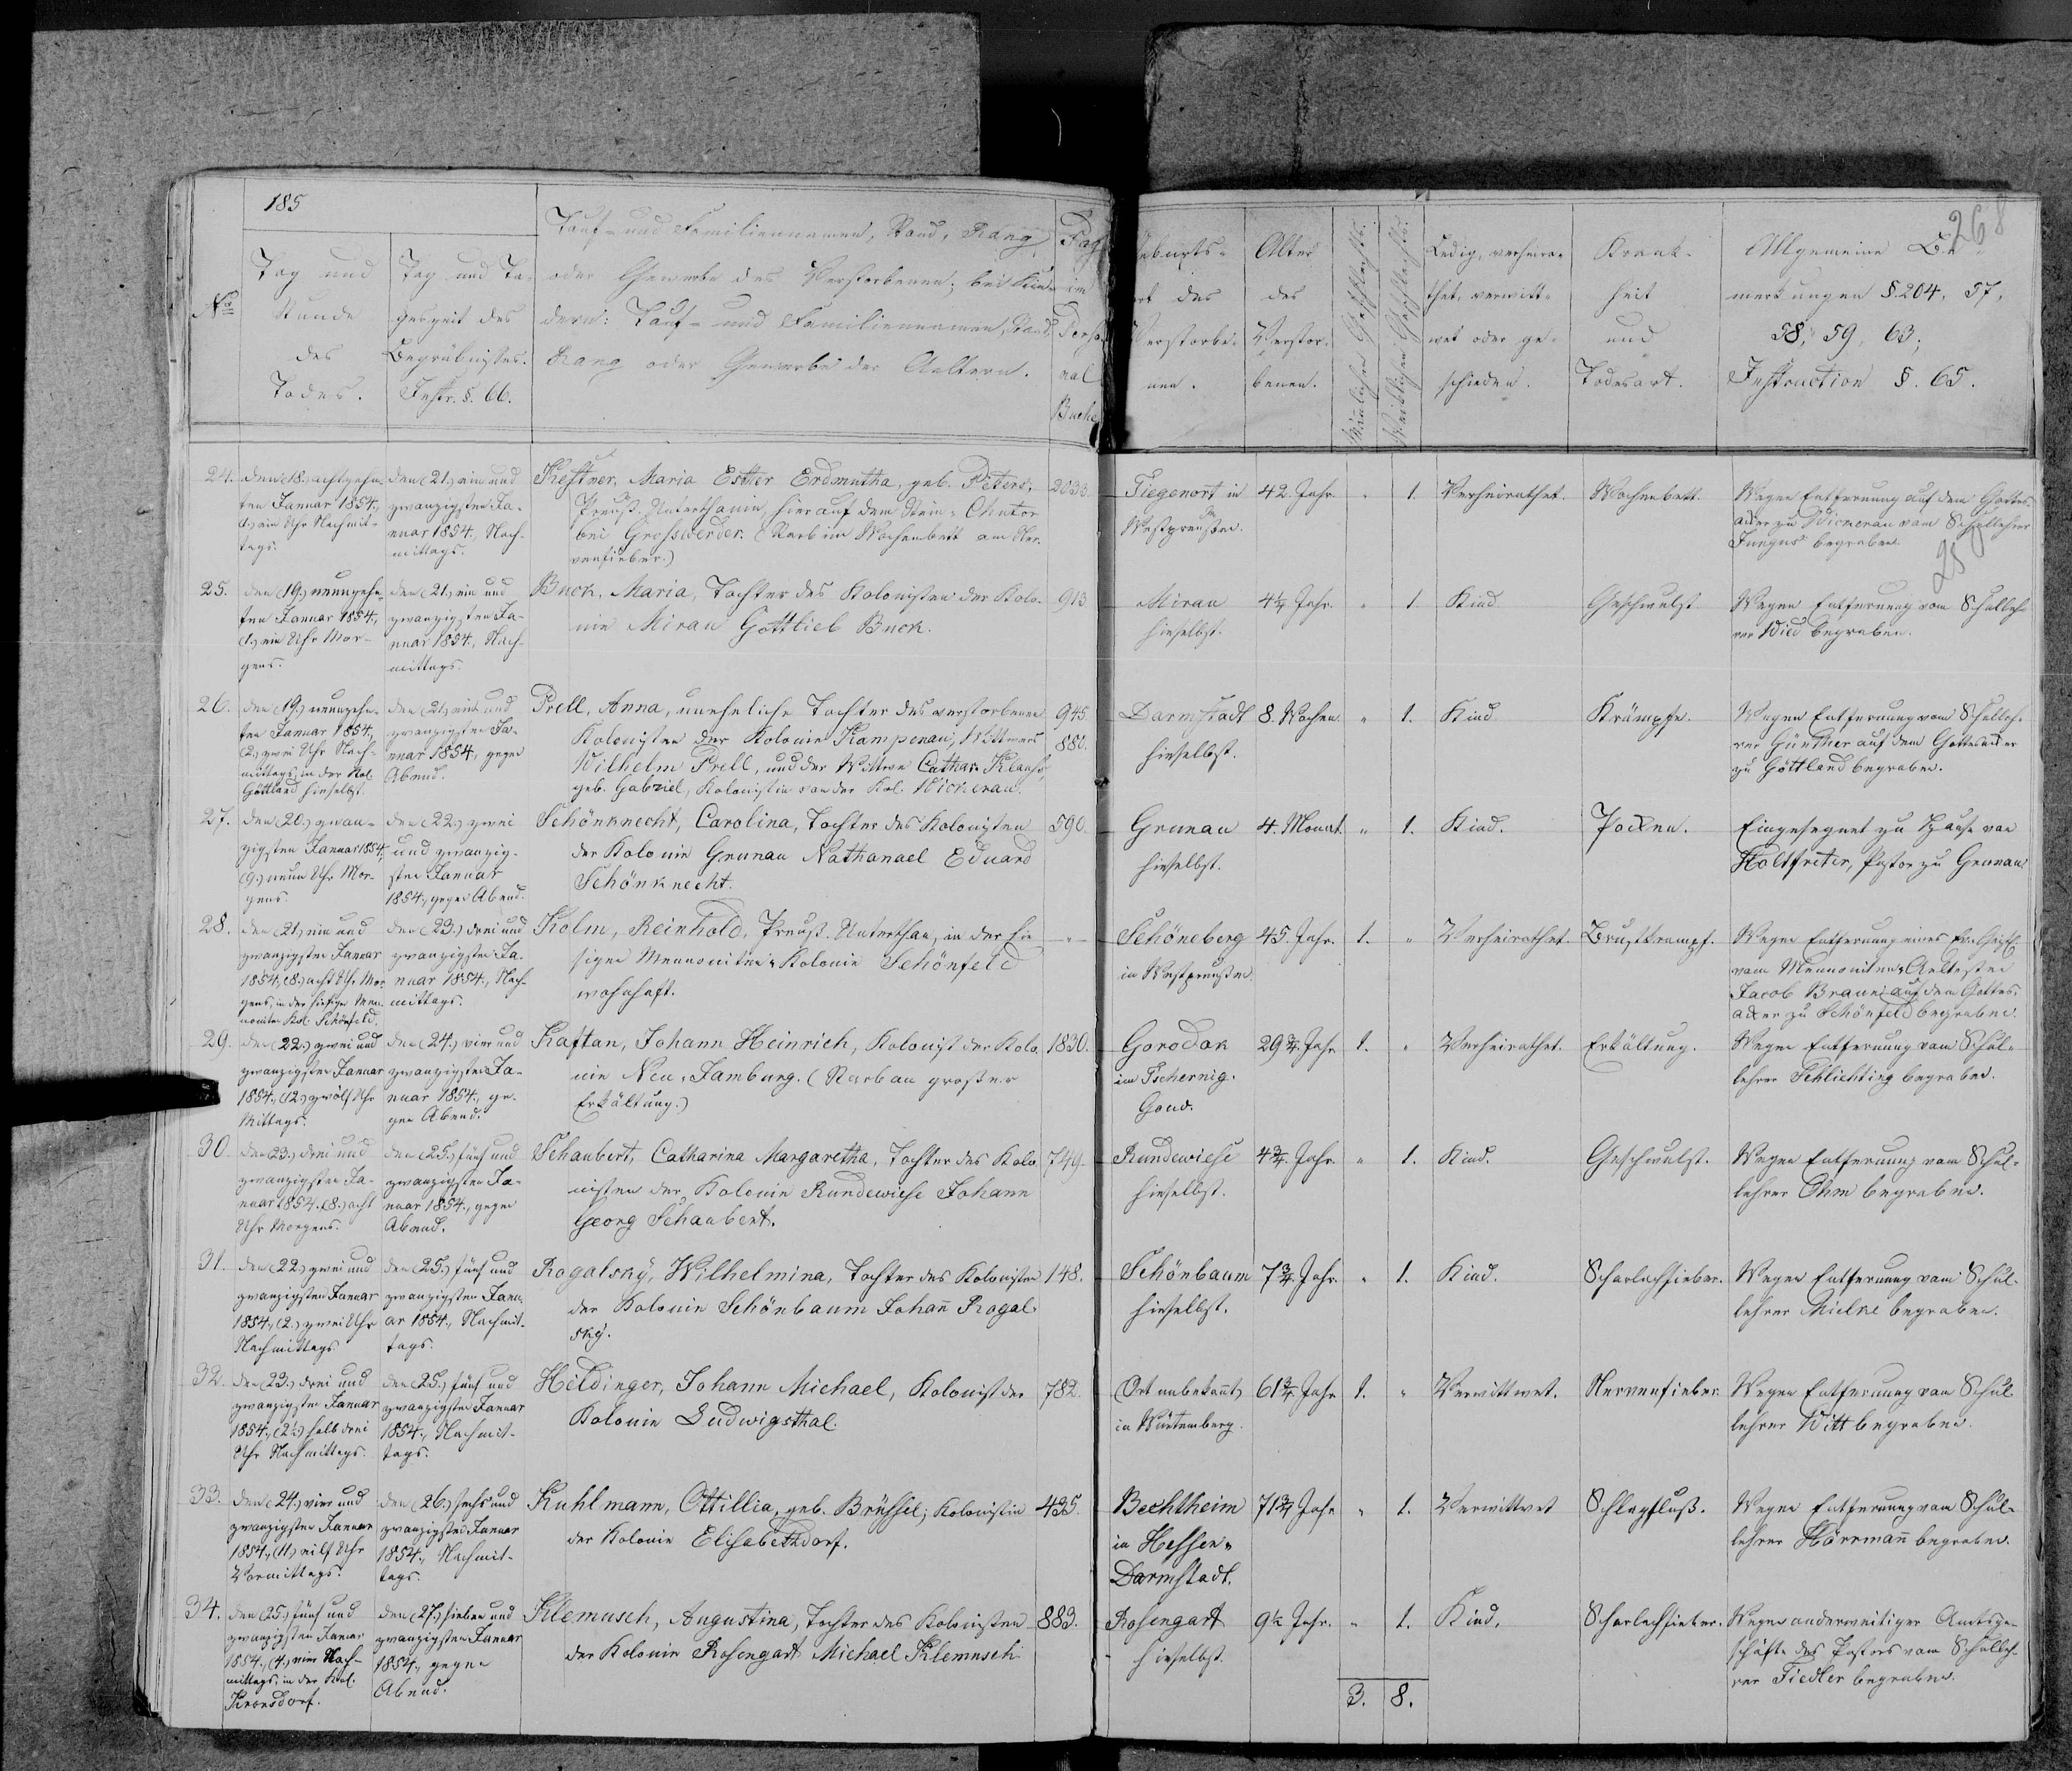 185
268
№
Tag und
Stunde
des
Todes.
Tag und Ta-
geszeit des
Begräbnisses.
Instr. §. 66.
Tauf- und Familiennamen, Stand, Rang
oder Gewerbe des Verstorbenen; bei Kin-
dern: Tauf- und Familiennamen, Stand,
Rang oder Gewerbe der Aeltern.
Pag
im
Perso
nal
Buche
Geburts-
ort des
Verstorbe-
nen.
Alter
des
Verstor-
benen.
Männlichen Geschlechts.
Weiblichen Geschlechts.
Ledig, verheira-
thet, verwitt-
wet oder ge-
schieden.
Krank-
heit
und
Todesart.
Allgemeine Be-
merkungen §. 204, 57,
58, 59, 63;
Instruction §. 65.
24.
den (18.) achtzehn-
ten Januar 1854.,
(1.) ein Uhr Nachmit-
tags.
den (21.) ein und
zwanzigsten Ja-
nuar 1854., Nach-
mittags.
Kestner, Maria Esther Erdmutha, geb. Peters,
Preuß. Unterthanin, hier auf dem Stein-Chutor
bei Grosswerder. (Starb im Wochenbett am Ner-
venfieber.)
2033.
Tiegenort in
Westpreußen.
42. Jahr.
"
1.
Verheirathet.
Wochenbett.
Wegen Entfernung auf dem Gottes-
acker zu Wickerau vom Schullehrer
begraben.
25
25.
den (19.) neunzehn-
ten Januar 1854.,
(1.) ein Uhr Mor-
gens.
den (21.) ein und
zwanzigsten Ja-
nuar 1854., Nach-
mittags.
Buck, Maria, Tochter des Kolonisten der Kolo-
nie Mirau Gottlieb Buck.
913
Mirau
hieselbst.
4¼ Jahr.
"
1
Kind
Geschwulst
Wegen Entfernung vom Schulleh-
rer Wied begraben.
26.
den (19.) neunzehn-
ten Januar 1854.,
(2.) zwei Uhr Nach-
mittags, in der Kol.
Göttland hieselbst.
den (21.) ein und
zwanzigsten Ja-
nuar 1854., gegen
Abend.
Prell, Anna, uneheliche Tochter des verstorbenen
Kolonisten der Kolonie Kampenau, Wittwers
Wilhelm Prell, und der Wittwe Cathar. Klauss,
geb. Gabriel, Kolonistin von der Kol. Wickerau.
945.
880.
Darmstadt
hieselbst.
8. Wochen.
"
1.
Kind
Krämpfe.
Wegen Entfernung vom Schulleh-
rer Günther auf dem Gottesacker
zu Göttland begraben.
27.
den (20.) zwan-
zigsten Januar 1854.,
(9.) neun Uhr Mor-
gens.
den (22.) zwei
und zwanzig-
sten Januar
1854., gegen Abend.
Schönknecht, Carolina, Tochter des Kolonisten
der Kolonie Grunau Nathanael Eduard
Schönknecht.
590.
Grunau
hieselbst.
4. Monat.
"
1.
Kind.
Pocken.
Eingesegnet zu Hause von
Holtfreter, Pastor zu Grunau
28.
den (21.) ein und
zwanzigsten Januar
1854., (8.) acht Uhr Mor-
gens, in der hiesigen Men-
noniten Kol. Schönfeld.
den (23.) drei und
zwanzigsten Ja-
nuar 1854., Nach-
mittags.
Kolm, Reinhold, Preuß. Unterthan, in der hie-
sigen Mennoniten-Kolonie Schönfeld
wohnhaft.
"
Schöneberg
in Westpreußen
45. Jahr.
1.
"
Verheirathet.
Brustkrampf.
Wegen Entfernung eines Ev. Geistl.
vom Mennoniten-Aeltesten
Jacob Braun auf dem Gottes-
acker zu Schönfeld begraben.
29.
den (22.) zwei und
zwanzigsten Januar
1854., (12.) zwölf Uhr
Mittags.
den (24.) vier und
zwanzigsten Ja-
nuar 1854., ge-
gen Abend.
Kaftan, Johann Heinrich, Kolonist der Kolo-
nie Neu-Jamburg. (Starb an großer
Erkältung.)
1830.
Gorodok
im Tschernig.
Gouv.
29¾ Jahr
1.
"
Verheirathet.
Erkältung.
Wegen Entfernung vom Schul-
lehrer Schlichting begraben.
30.
den (23.) drei und
zwanzigsten Ja-
nuar 1854. (8.) acht
Uhr Morgens.
den (25.) fünf und
zwanzigsten Ja-
nuar 1854., gegen
Abend.
Schaubert, Catharina Margaretha, Tochter des Kolo-
nisten der Kolonie Rundewiese Johann
Georg Schaubert.
749.
Rundewiese
hieselbst.
4¾ Jahr.
"
1.
Kind.
Geschwulst.
Wegen Entfernung vom Schul-
lehrer Ohm begraben.
31.
den (22.) zwei und
zwanzigsten Januar
1854., (2.) zwei Uhr
Nachmittags
den (25.) fünf und
zwanzigsten Janu-
ar 1854., Nachmit-
tags.
Rogalský, Wilhelmina, Tochter des Kolonisten
der Kolonie Schönbaum Johañ Rogal-
ský.
148.
Schönbaum
hieselbst.
7¾ Jahr.
"
1.
Kind.
Scharlachfieber.
Wegen Entfernung vom Schul-
lehrer Mielke begraben.
32.
den (23.) drei und
zwanzigsten Januar
1854., (2½) halb drei
Uhr Nachmittags.
den (25.) fünf und
zwanzigsten Januar
1854., Nachmit-
tags.
Hildinger, Johann Michael, Kolonist der
Kolonie Ludwigsthal.
782.
(Ort unbekañt)
in Würtemberg.
61¾ Jahr
1.
"
Verwittwet.
Nervenfieber
Wegen Entfernung vom Schul-
lehrer Witt begraben.
33.
den (24.) vier und
zwanzigsten Januar
1854., (11.) eilf Uhr
Vormittags.
den (26.) sechs und
zwanzigsten Januar
1854., Nachmit-
tags.
Kuhlmann, Ottillia, geb. Brüssel, Kolonistin
der Kolonie Elisabethdorf.
435.
Bechtheim
in Hessen-
Darmstadt.
71¾ Jahr
"
1.
Verwittwet
Schlagfluß.
Wegen Entfernung vom Schul-
lehrer Hörrmañ begraben.
34.
den (25.) fünf und
zwanzigsten Januar
1854., (4.) vier Nach-
mittags, in der Kol.
Kronsdorf.
den (27.) sieben und
zwanzigsten Januar
1854., gegen
Abend.
Klemusch, Augustina, Tochter des Kolonisten
der Kolonie Rosengart Michael Klemusch
883.
Rosengart
hieselbst.
9¼ Jahr.
"
1.
Kind.
Scharlachfieber.
Wegen anderweitiger Amtsge-
schäfte des Pastors vom Schulleh-
rer Fiedler begraben.
3.
8.